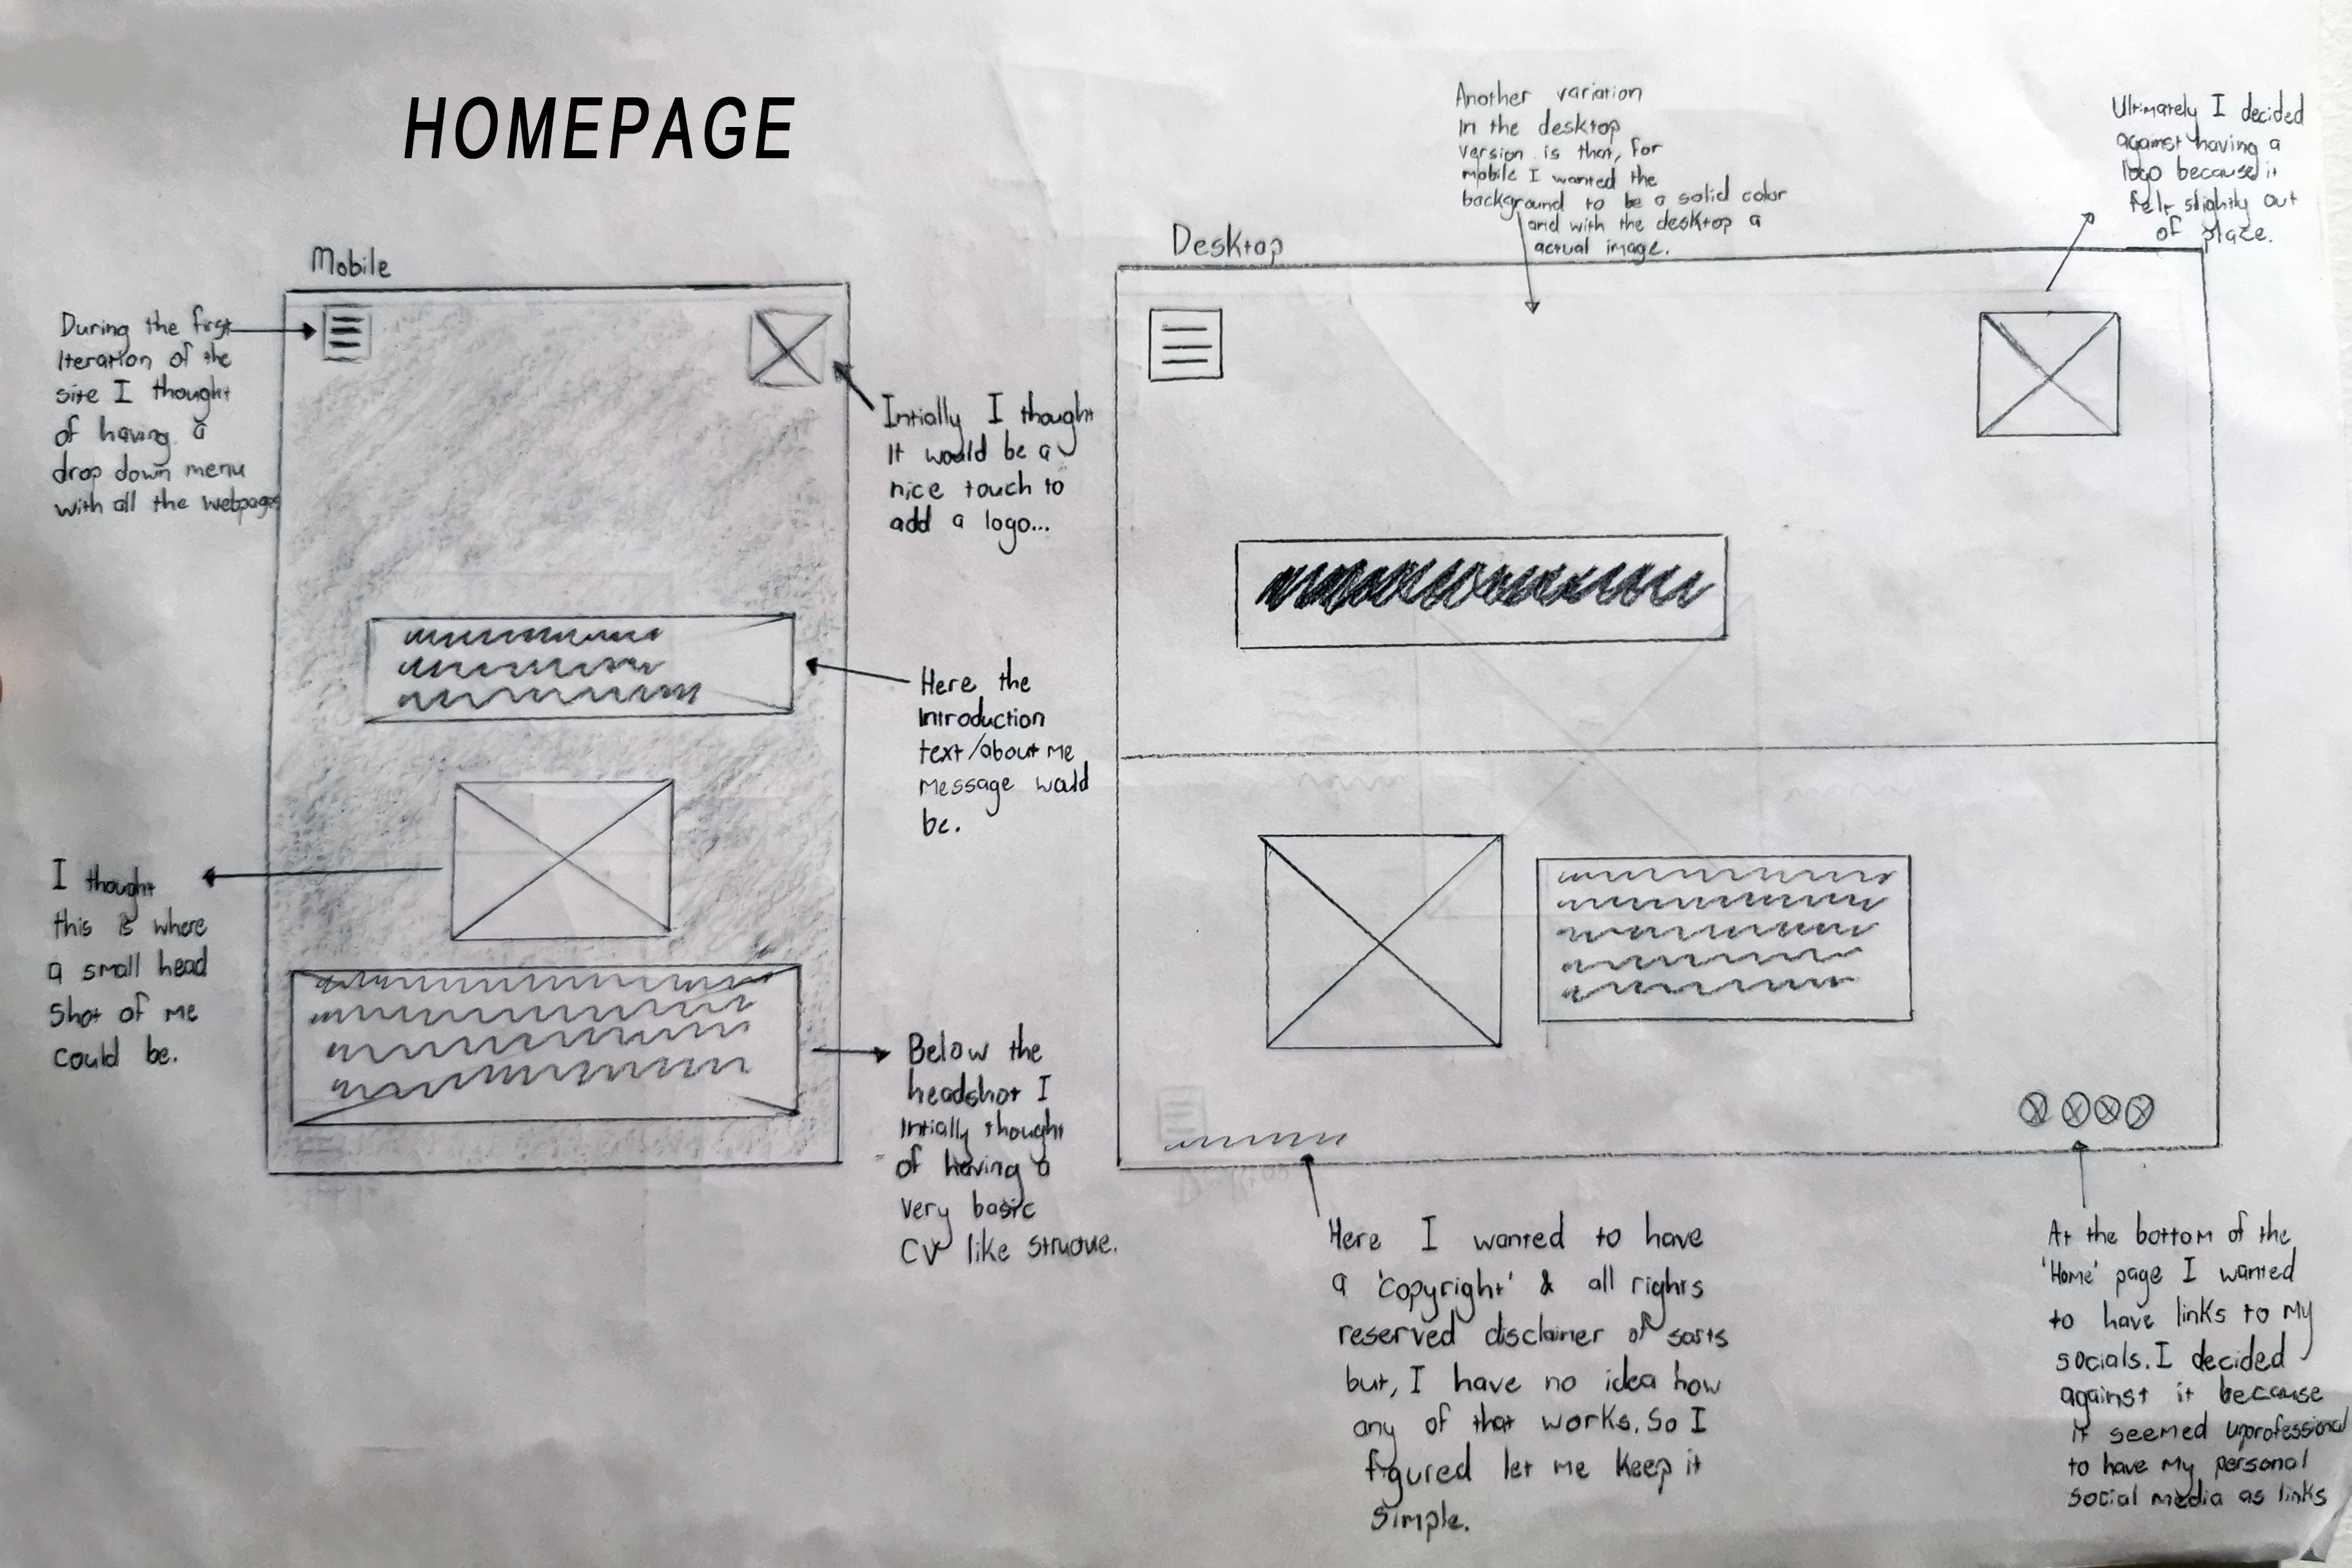 HOMEPAGE
Mobile
During the first
Iteration of the
site I thought
of having a
drop down menu
with all the webpages
Intially I thought
It would be a
nice touch to
add a logo...
Here the
Introduction
text/about me
message would
be.
I thought
this is where
a small head
shot of me
could be.
Below the
headshot I
Intially thought
of having a
very basic
CV like
Desktop
Another variation
In the desktop
version is that, for
mobile I wanted the
background to be a solid color
and with the desktop a
actual image.
Ultimately I decided
against having a
logo because it
felt slightly out
of place.
Here I wanted to have
a 'copyright' & all rights
reserved disclaimer of sorts
but, I have no idea how
any of that works. So I
figured let me keep it
simple.
At the bottom of the
'Home' page I wanted
to have links to my
socials. I decided
against it because
it seemed unprofessional
to have my personal
social media as links